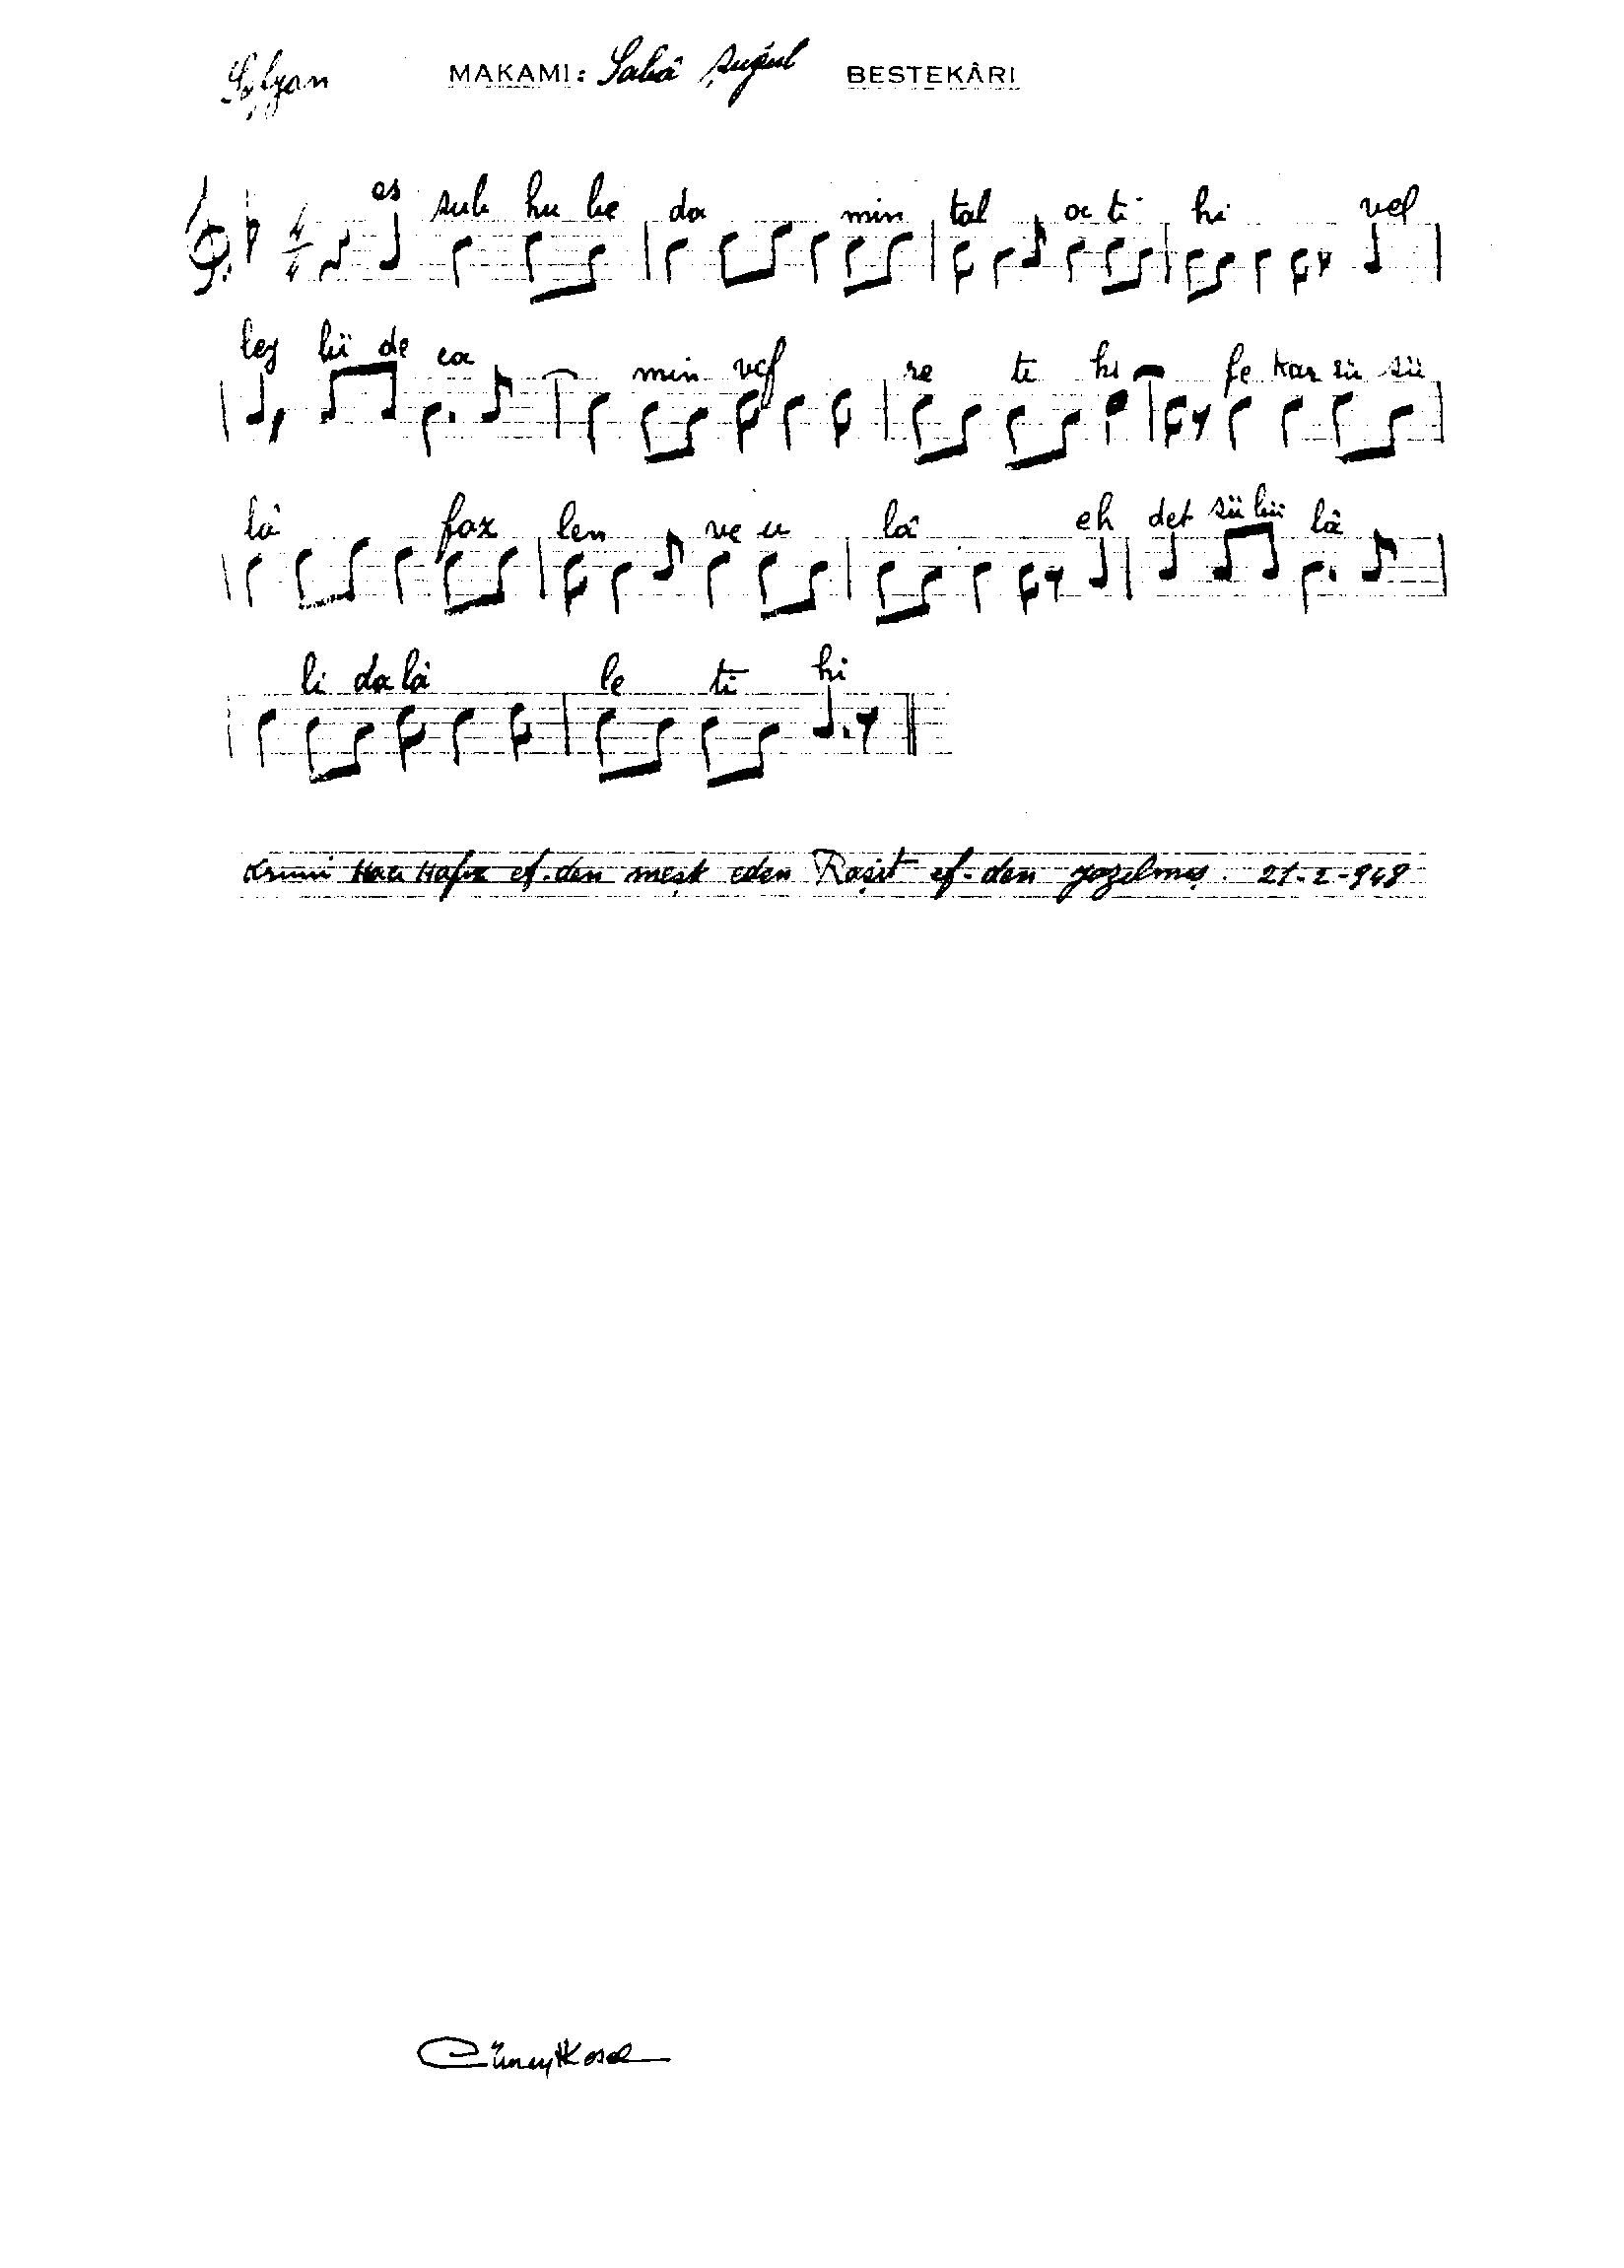 Sofyan MAKAMI: Sabâ şuğul BESTEKÂRI
4/4
es sub hu be da min tal a ti hi vel
ley lü de ca min vef re ti hi fe kar sü sü
lâ faz len ve u lâ eh det sü bü lâ
li da lâ le ti hi
Hacı Hafız ef-den meşk eden Raşit ef-den yazılmış. 21-2-948
Cüneyt Kosal